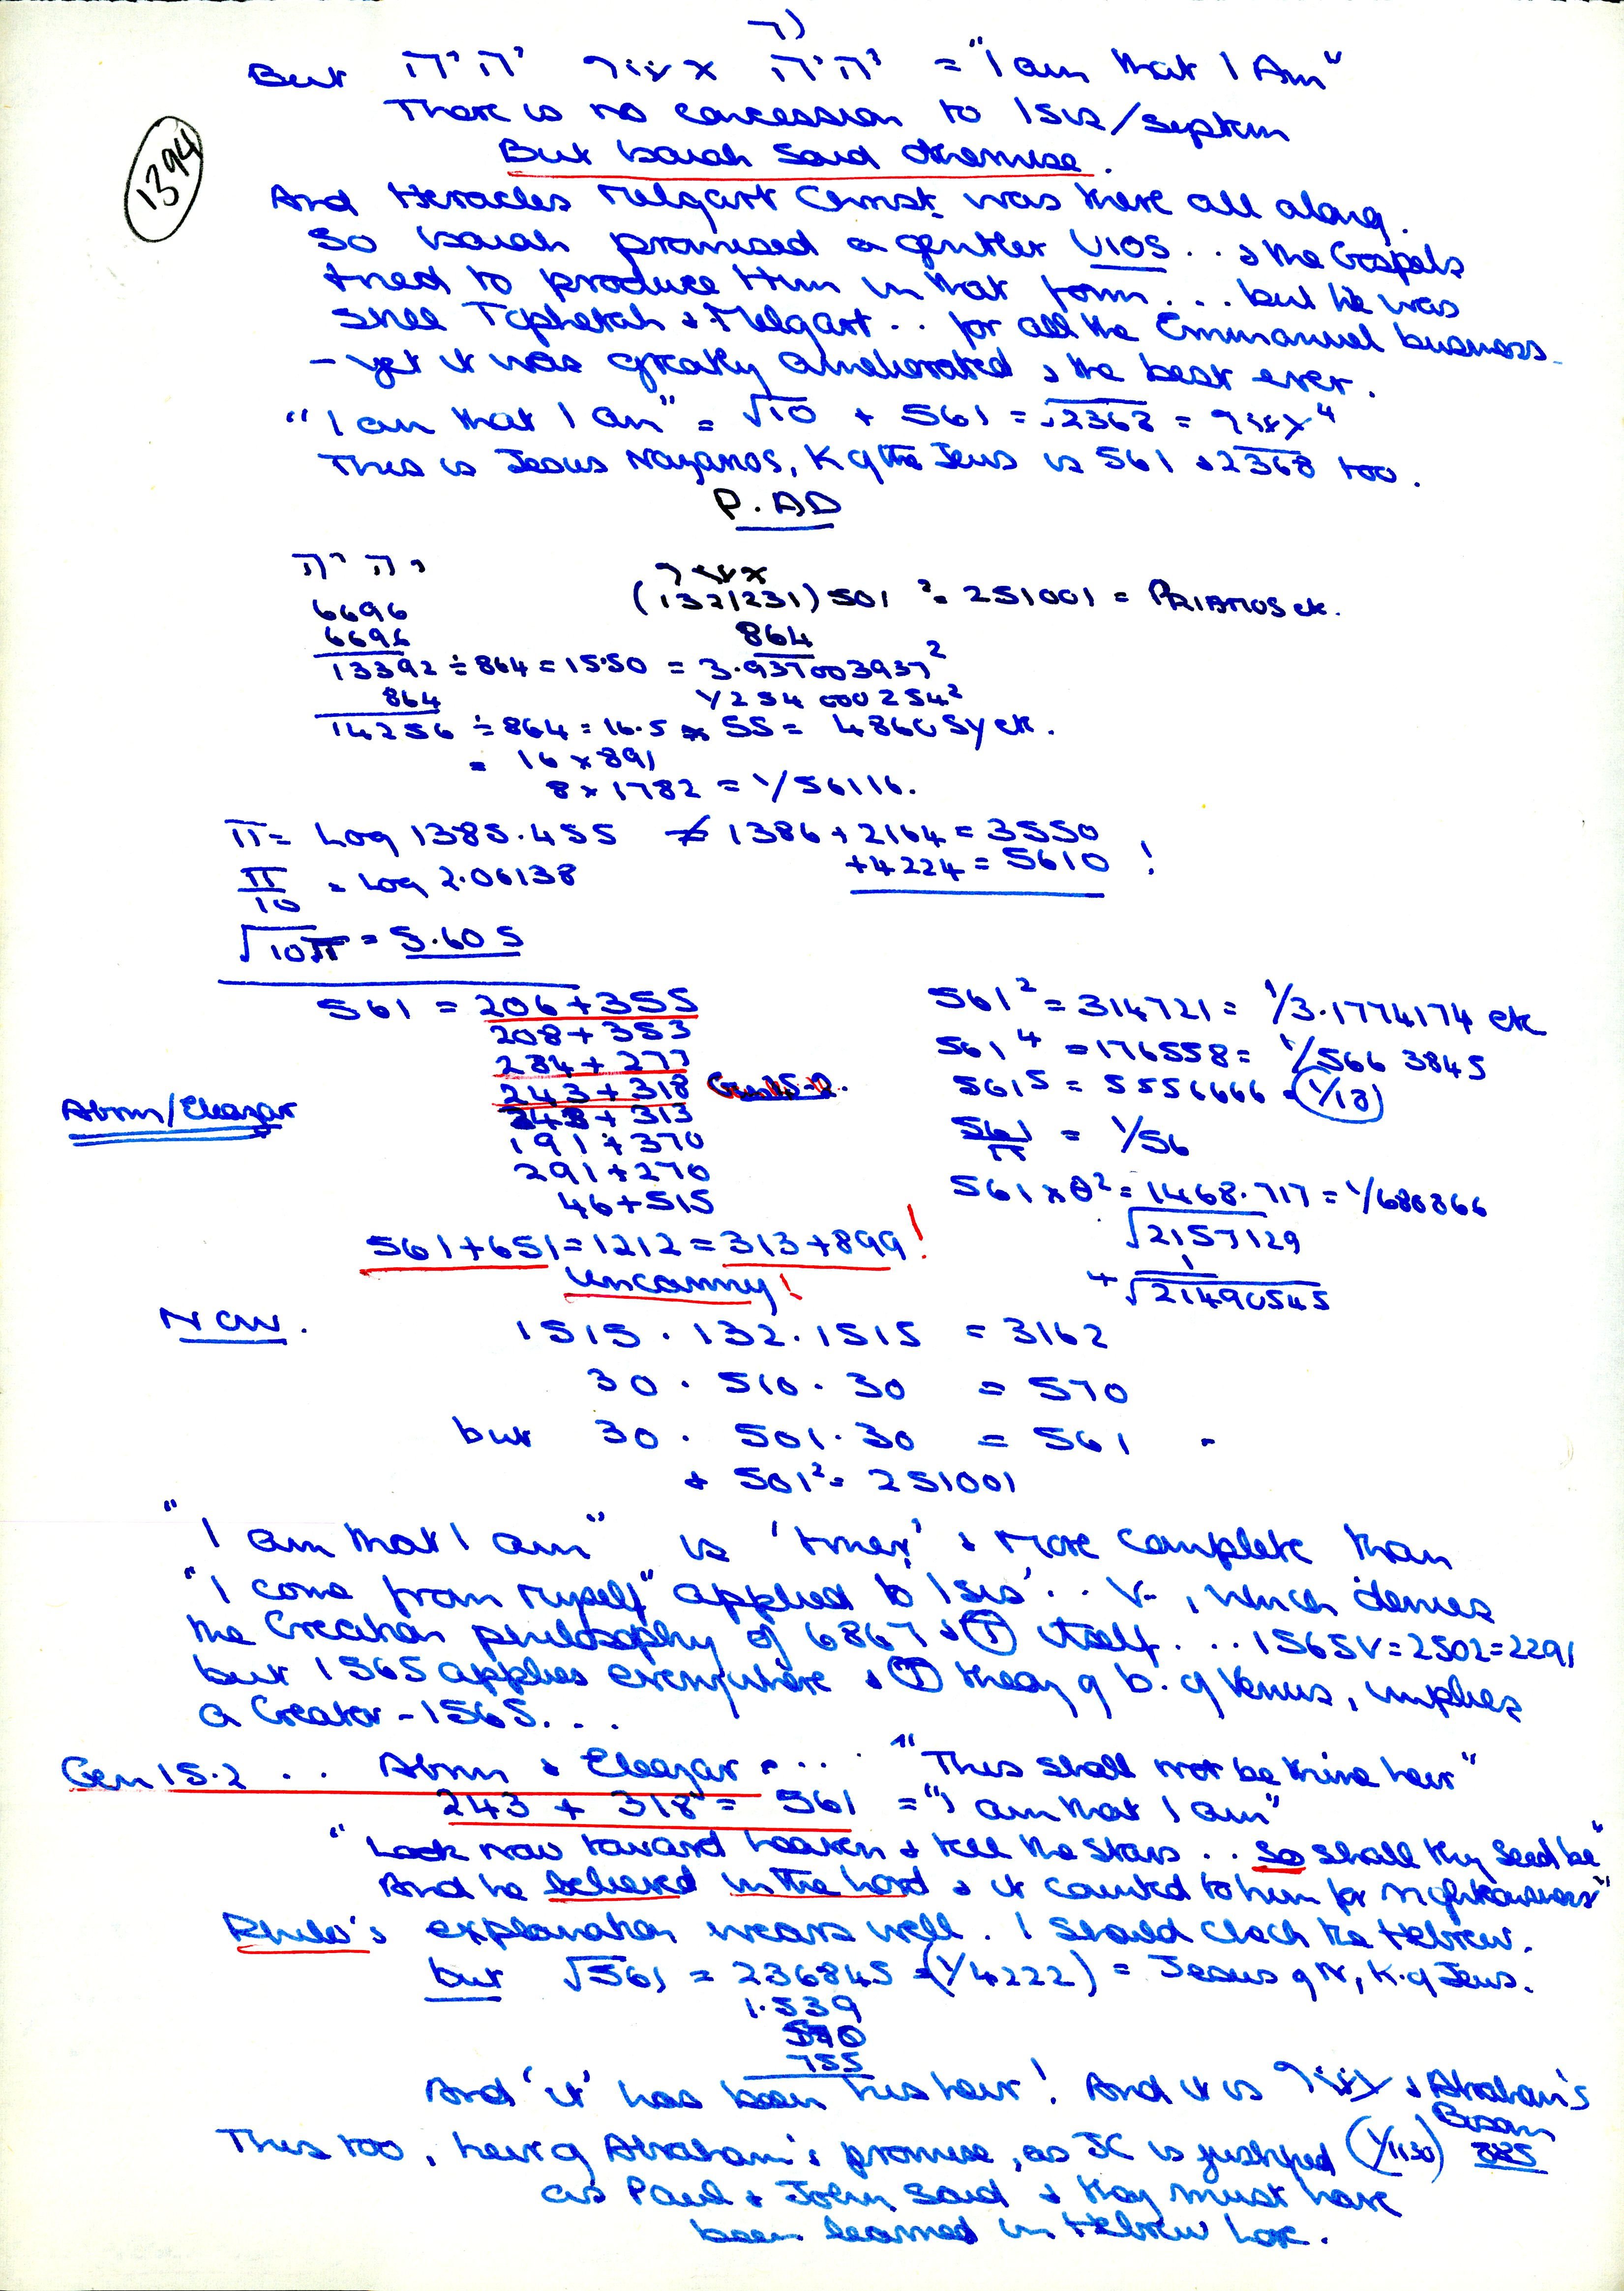 ר)
But יהיה אשר יהיה = "I am that I Am"
There is no concession to Isis/septem
But Isaiah said otherwise.
1394
And Heracles Melqart Christ was there all along.
So Isaiah promised a gentler UIOS . . & the Gospels
tried to produce Him in that form . . . but he was
still Tophetah & Melqart . . for all the Emmanuel business
- yet it was greatly ameliorated & the best ever.
"I am that I am" = √10 + 561 = √2368 = אשר 4
This is Jesus Nazarios, K of the Jews is 561 & 2368 too.
P. AD
יהיה אשר
6696 (1321231) 501 ² = 251001 = PRIAMOS etc.
6696 864
13392 ÷ 864 = 15.50 = 3.937003937²
864 1/254 000 254²
14256 ÷ 864 = 16.5 × SS = 4860 Sy etc.
= 16 × 891
8 × 1782 = 1/56116.
π = Log 1385.455 ≠ 1386 + 2164 = 3550
+4224 = 5610 !
π/10 = Log 2.06138
√10π = 5.605
561 = 206 + 355
208 + 353
284 + 277
243 + 318 Gen 15-2.
Abrm/Eleazar
248 + 313
191 + 370
291 + 270
46 + 515
561² = 314721 = 1/3.1774174 etc
561⁴ = 176558 = 1/566 3845
561⁵ = 5556666 = (1/18)
561/π = 1/56
561 × θ² = 1468.717 = 1/680866
√2157129
1
4√21490545
561 + 651 = 1212 = 313 + 899 !
Uncanny !
Now. 1515 . 132 . 1515 = 3162
30 . 510 . 30 = 570
but 30 . 501 . 30 = 561
+ 501² = 251001
"I am that I am" is 'truer' & more complete than
"I come from myself" applied to Isis . . V- , which denies
the Creation philosophy of 6867 & (T) itself . . . 1565 V = 2502 = 2291
but 1565 applies everywhere & (T) theory of b. of Venus, implies
a Creator - 1565. . .
Gen 15.2 . . Abrm & Eleazar . . . "This shall not be thine heir"
243 + 318 = 561 = "I am that I am"
"Look now toward heaven & tell the stars . . so shall thy seed be"
And he believed in the Lord & it counted to him for righteousness"
Philo's explanation wears well. I should check the Hebrew.
but √561 = 236845 = (1/4222) = Jesus of N, K. of Jews.
1.539
570
755
And 'it' has been his heir ! And it is אשר & Abraham's
Bosom
This too, heir of Abraham's promise, as JC is justified (1/1130) 885
as Paul & John said & they must have
been learned in Hebrew Lore.